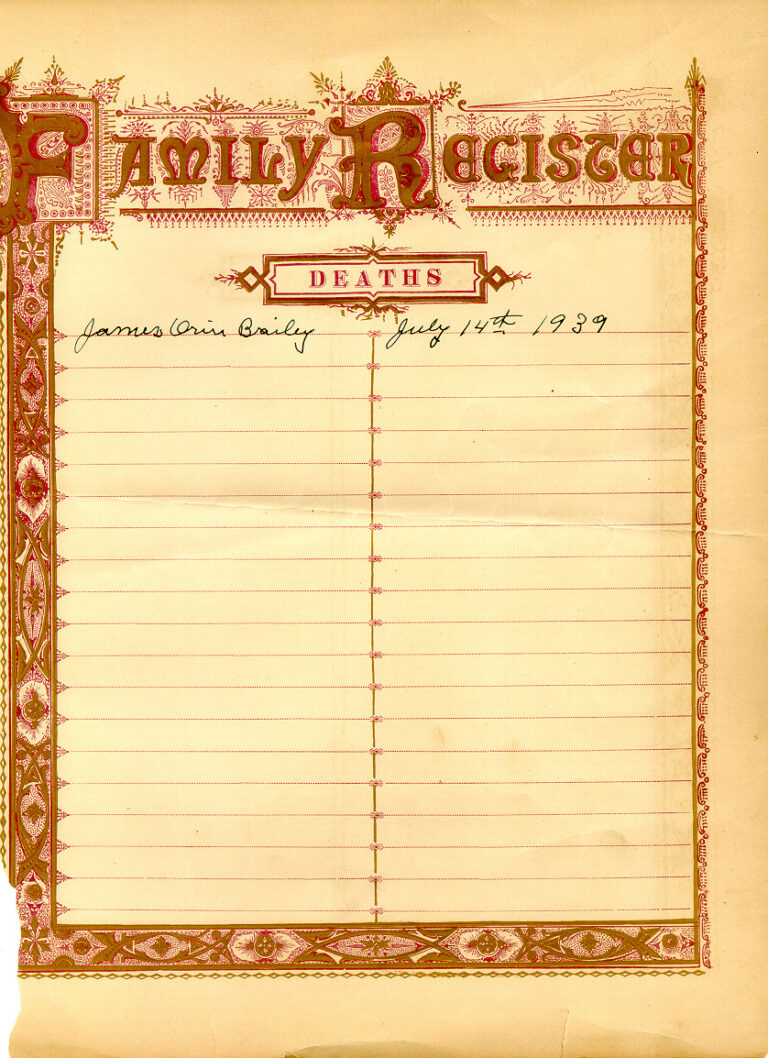 FAMILY REGISTER
DEATHS
James Orin Bailey July 14th 1939